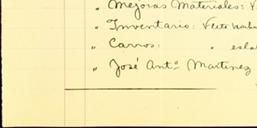 " Mejoras Materiales: V
" Inventario: Veite
" Carros: " esta
" José Ant.º Martinez